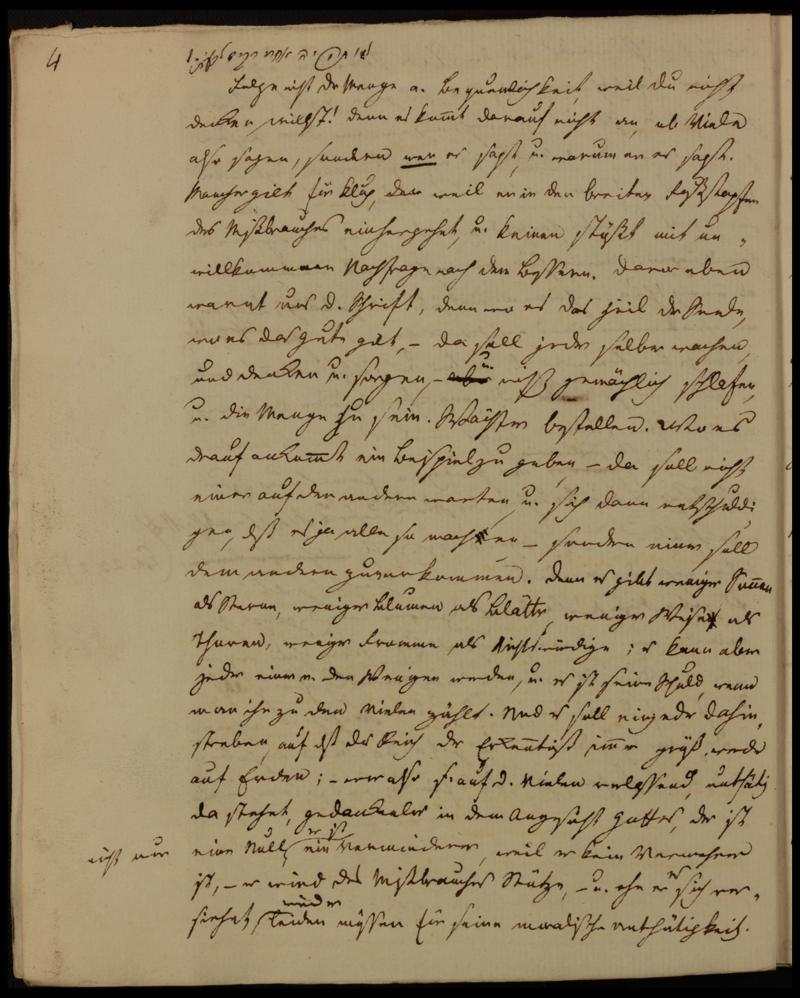 4
Folge nicht der Menge a. Bequemlichkeit, weil du nicht
denken willst! denn es kommt darauf nicht an, ob Viele
also sagen, sondern wer es sagt, u. warum er es sagt.
Mancher gilt für klug, der weil er in den breiten Fußstapfen
des Mißbrauches einhergehet, u. keinen stößt mit un-
willkommnen Nachfrage nach dem Bessern. Davor eben
warnt uns d. Schrift, denn wo es das Heil der Seele,
wo es das Gute gilt, – da soll jeder selber wachen,
und denken u. sorgen, – u. nicht gemächlich schlafen,
u. die Menge zu sein. Wächter bestellen. Wo es
drauf ankommt ein Beispiel zu geben – da soll nicht
einer auf den andern warten, u. sich dann entschuldi-
gen, daß es ja alle so machen – sondern einer soll
dem andern zuvorkommen. Denn es gibt weniger Sonnen
als Sterne, weniger Blumen als Blätter, weniger Weise als
Thoren, weniger Fromme als Nichtswürdige; es kann aber
jeder einer v. den Wenigen werden, u. es ist seine Schuld, wenn
man ihn zu den Vielen zählt. Und es soll ein jeder dahin
streben, auf daß das Reich der Erkenntniß immer größ. werde
auf Erden; – wer also s. auf d. Vielen verlassend, unthätig
da stehet, gedankenlos in dem Angesicht Gottes, der ist
nicht nur eine Null, er ist ein Verminderer, weil er kein Vermehrer
ist, – er wird des Mißbrauches Stütze, – u. ehe er es sich ver-
siehet, wird er leiden müssen für seine moralische Unthätigkeit.